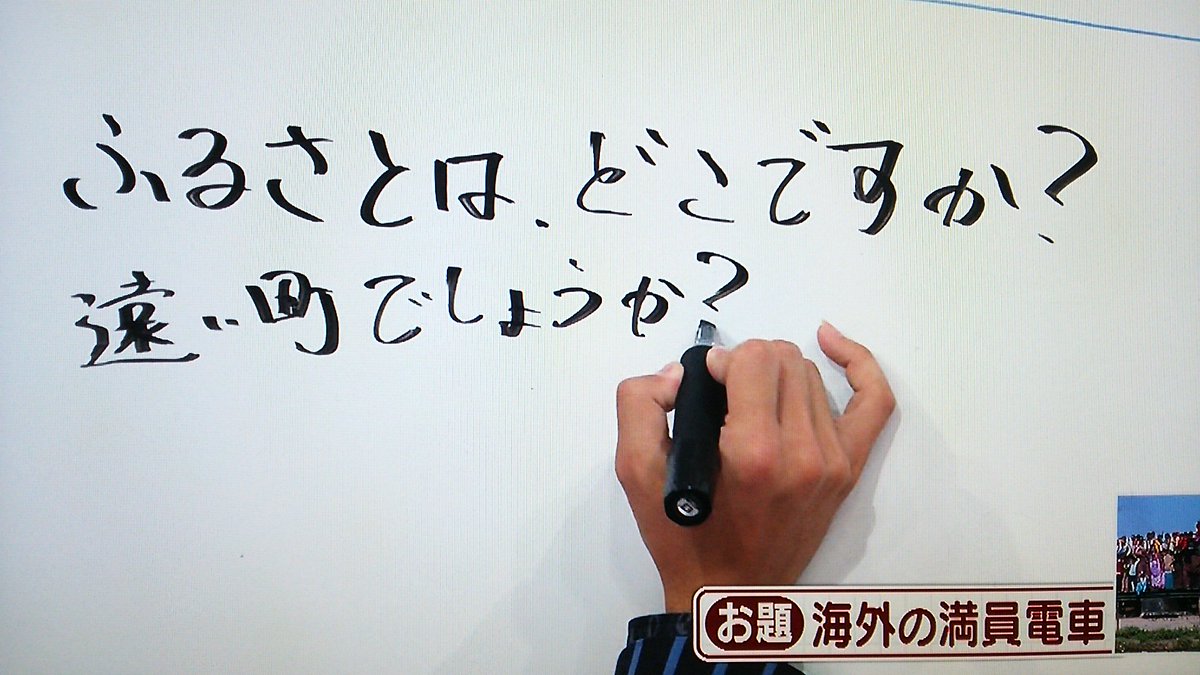 ふるさとは、どこですか?
遠い町でしょうか?
お題 海外の満員電車